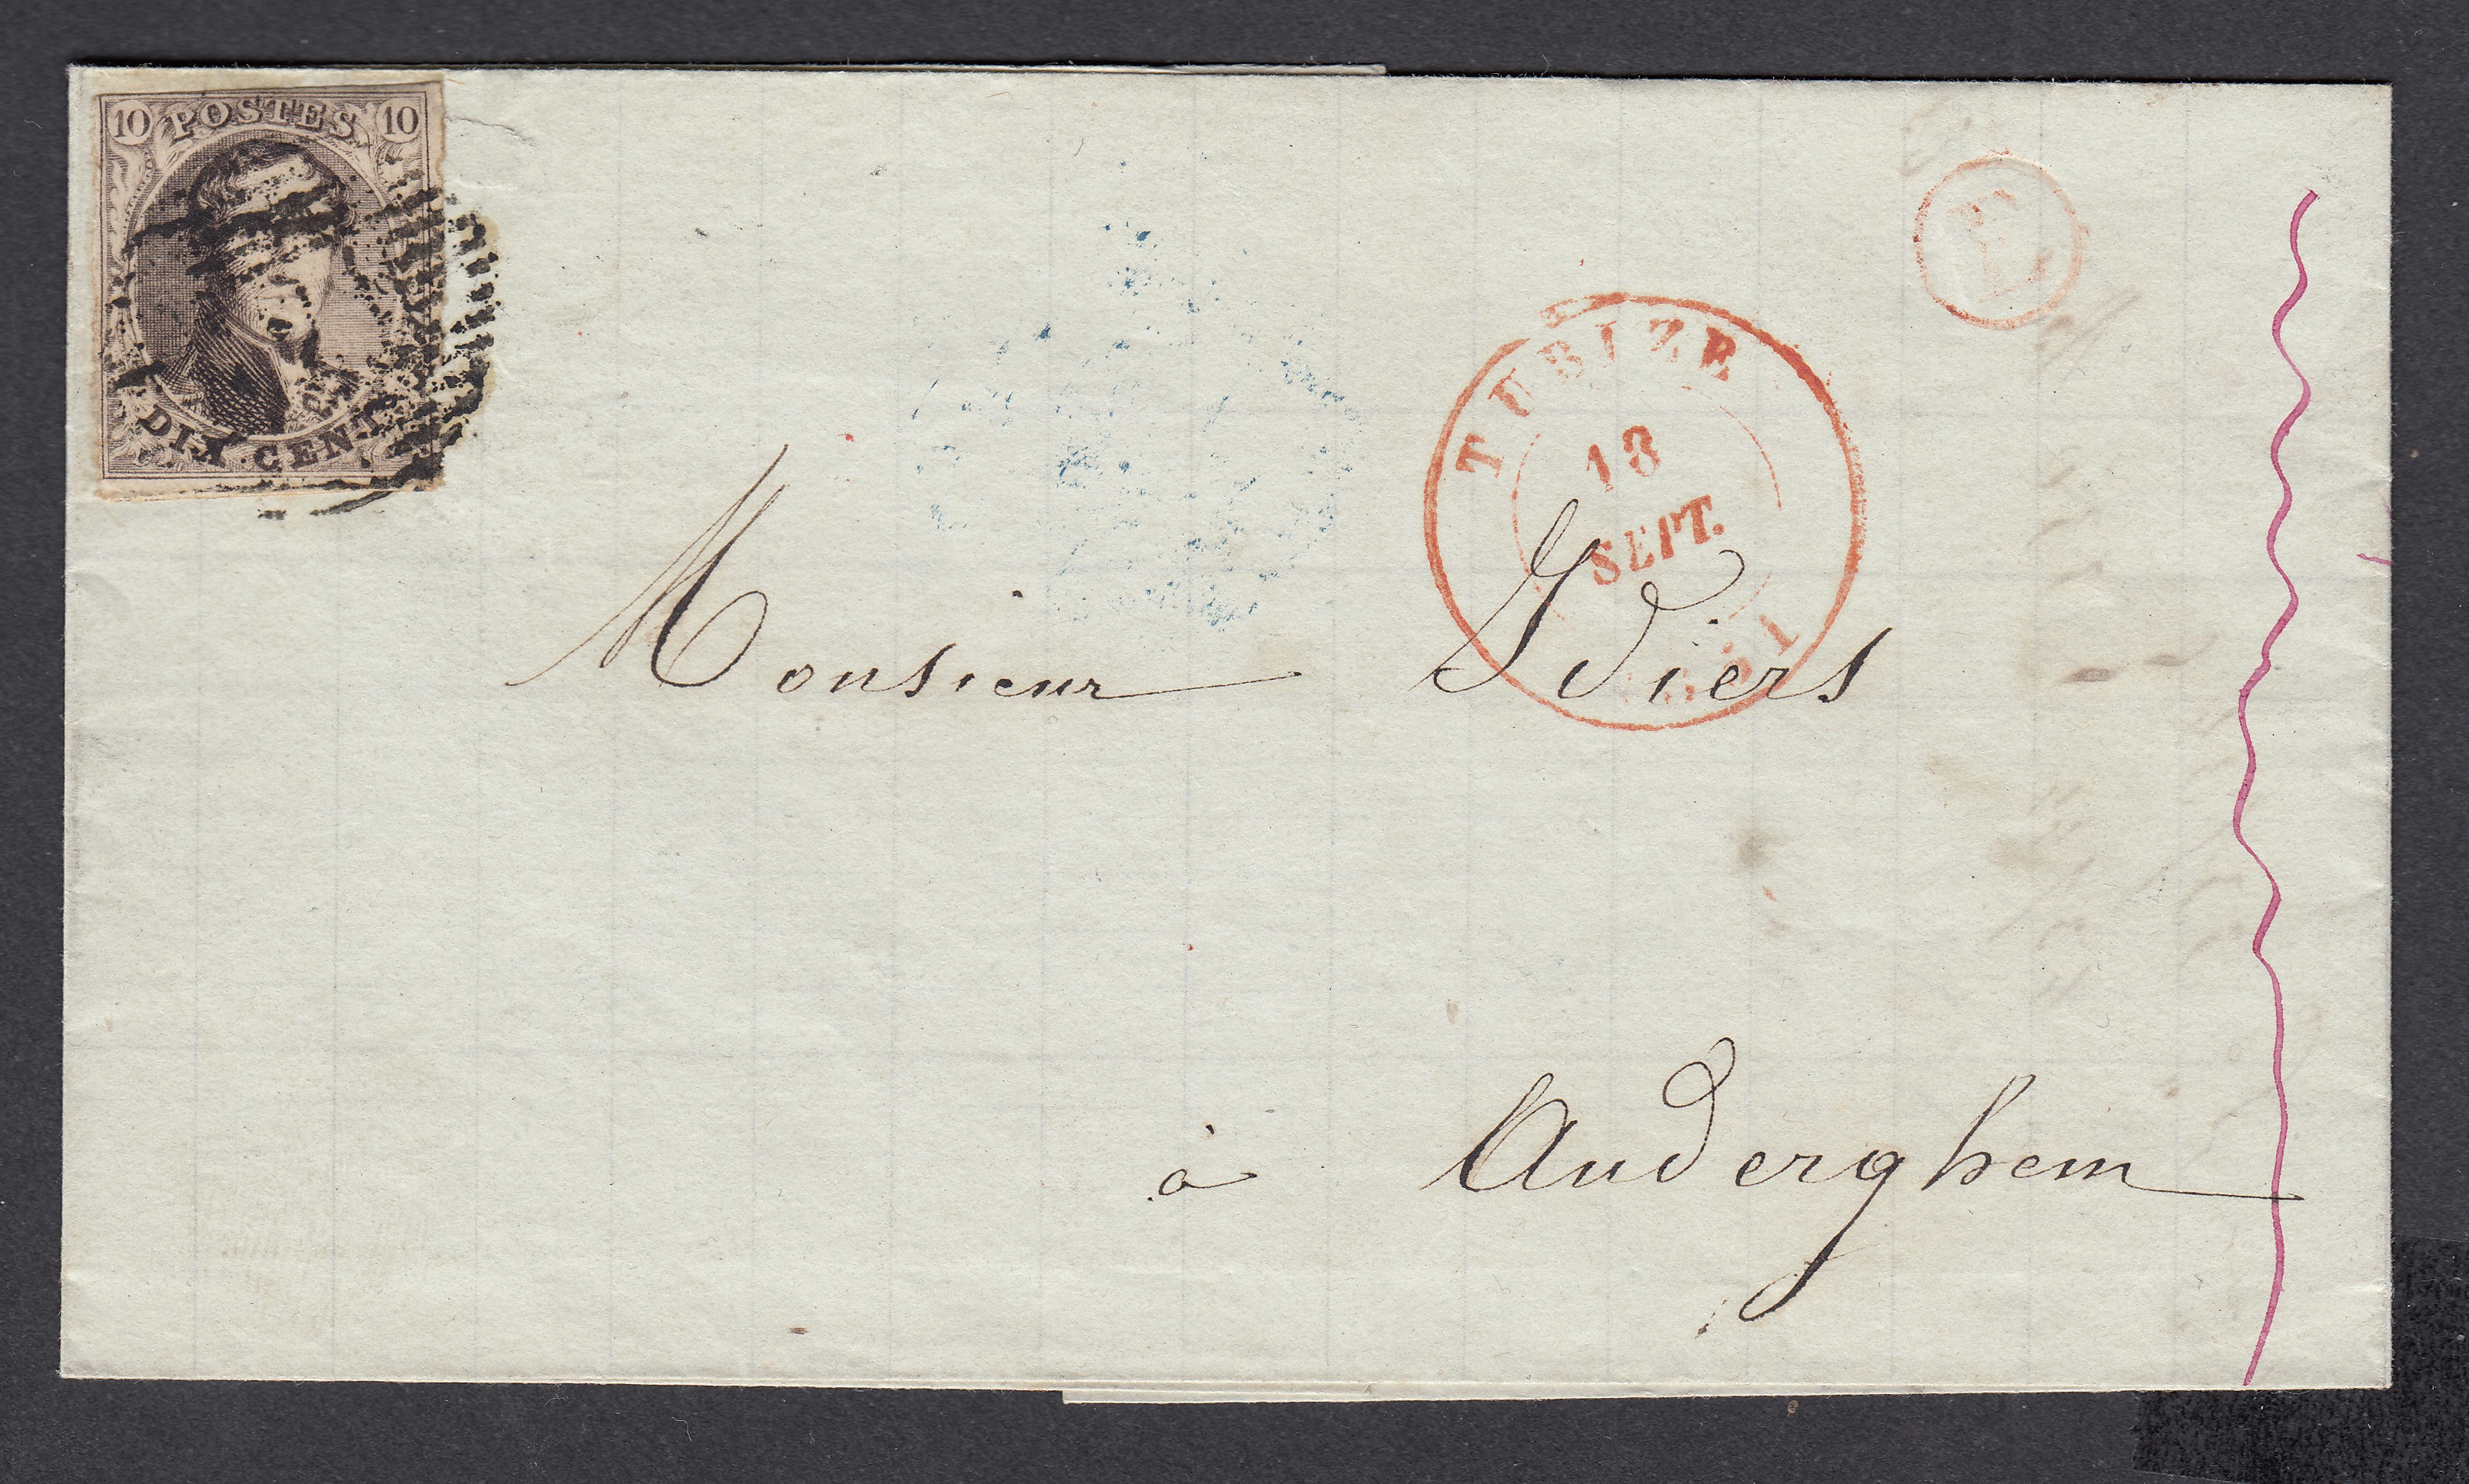 10 POSTES 10
DIX CENT
TUBIZE
13
SEPT.
Monsieur Idiers
à Auderghem